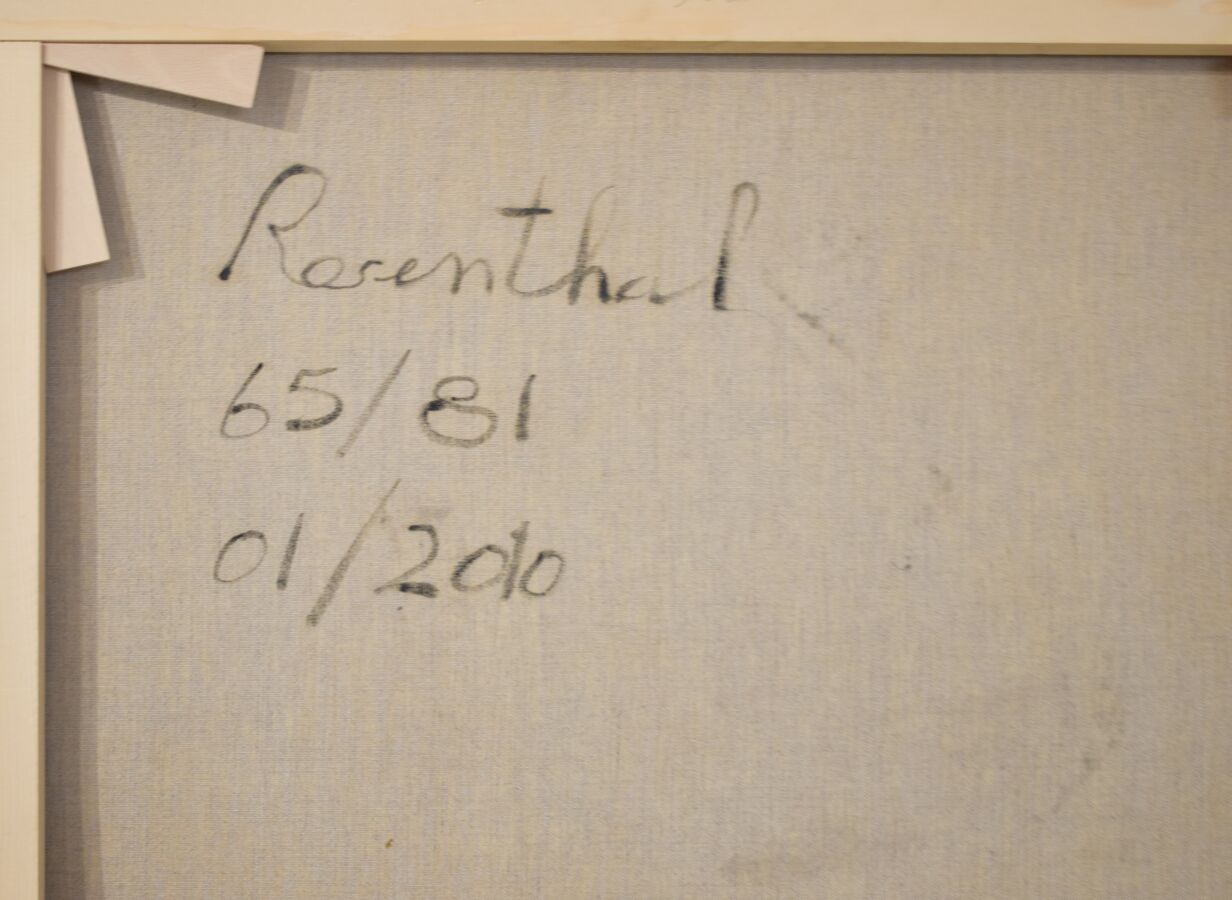 Rosenthal
65/81
01/2010